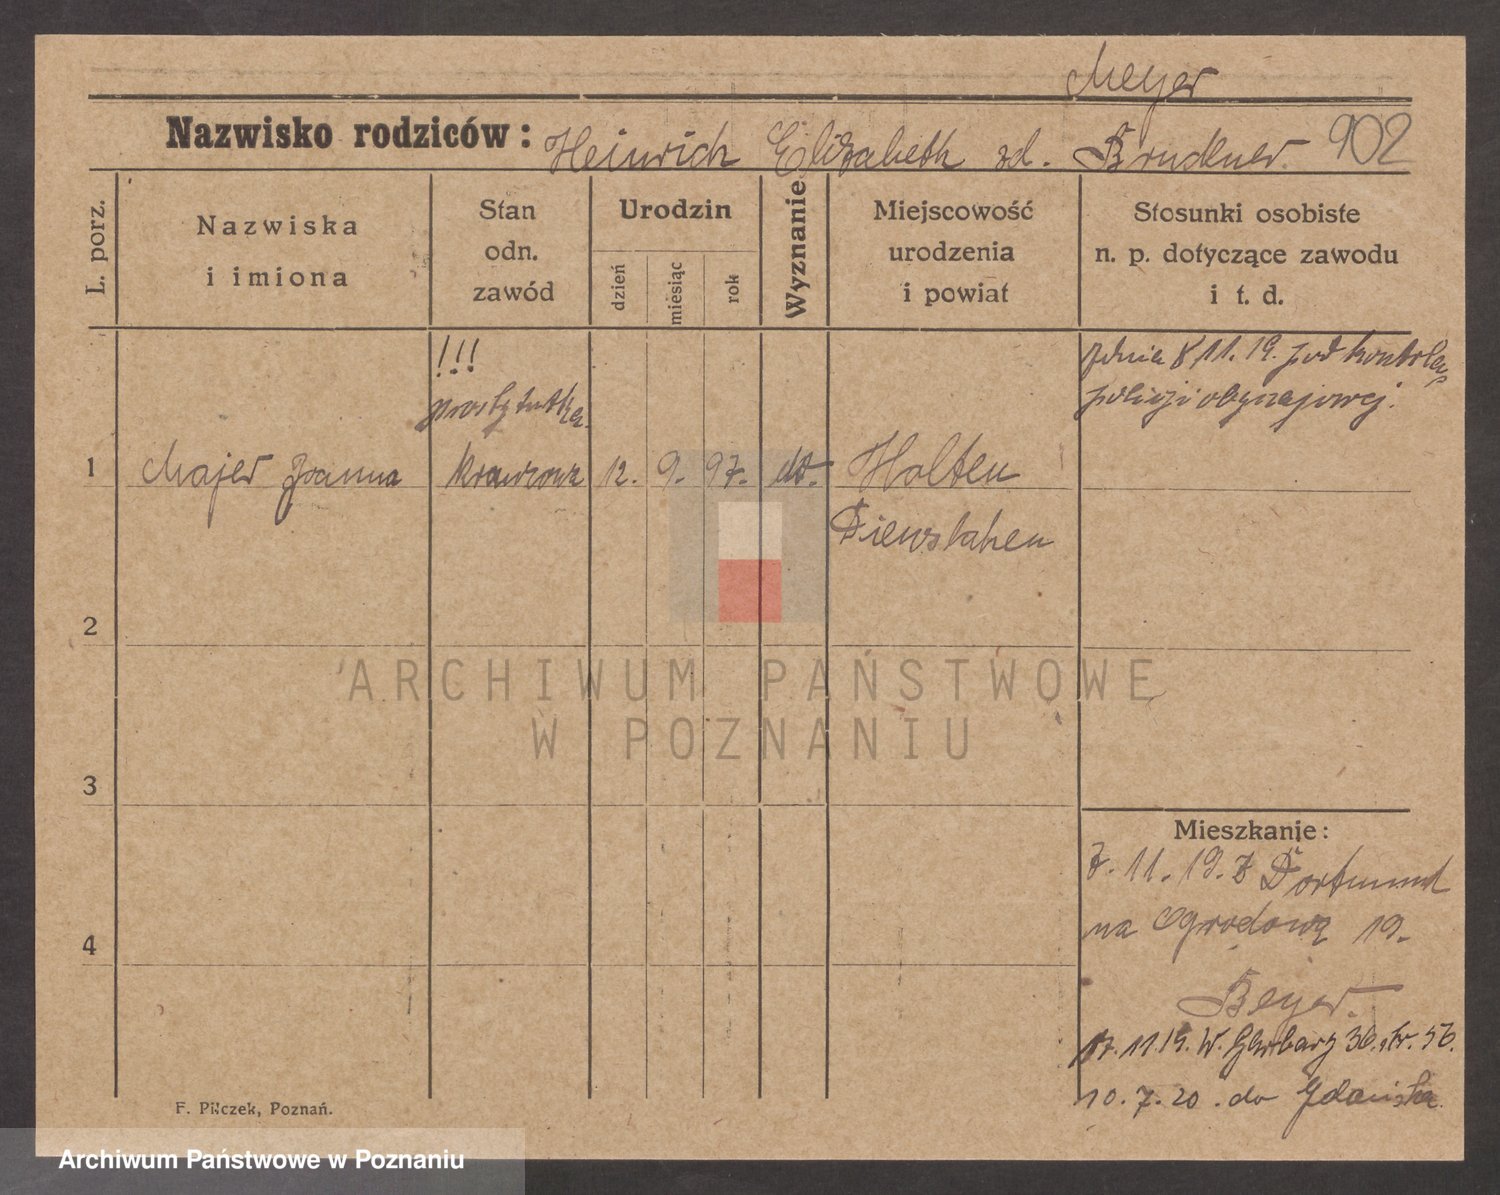 Meyer
Nazwisko rodziców: Heinrich Elizabeth zd. Bruckner. 902
L. porz.
Nazwiska
i imiona
Stan
odn.
zawód
Urodzin
dzień
miesiąc
rok
Wyznanie
Miejscowość
urodzenia
i powiat
Stosunki osobiste
n. p. dotyczące zawodu
i t. d.
!!!
prostytutka.
1
Majer Joanna
krawcowa
12.
9.
97.
Holten
Dienslaken
z dnia 8 11. 19. pod kontrolą
policji obyczajowej.
2
3
4
ARCHIWUM PAŃSTWOWE
W POZNANIU
Mieszkanie:
7. 11. 19. z Dortmund
na Ogrodową 19.
Beyer.
17. 11 19. W. Garbary 36. str. 56.
10. 7. 20. do Gdańska.
F. Pilczek, Poznań.
Archiwum Państwowe w Poznaniu